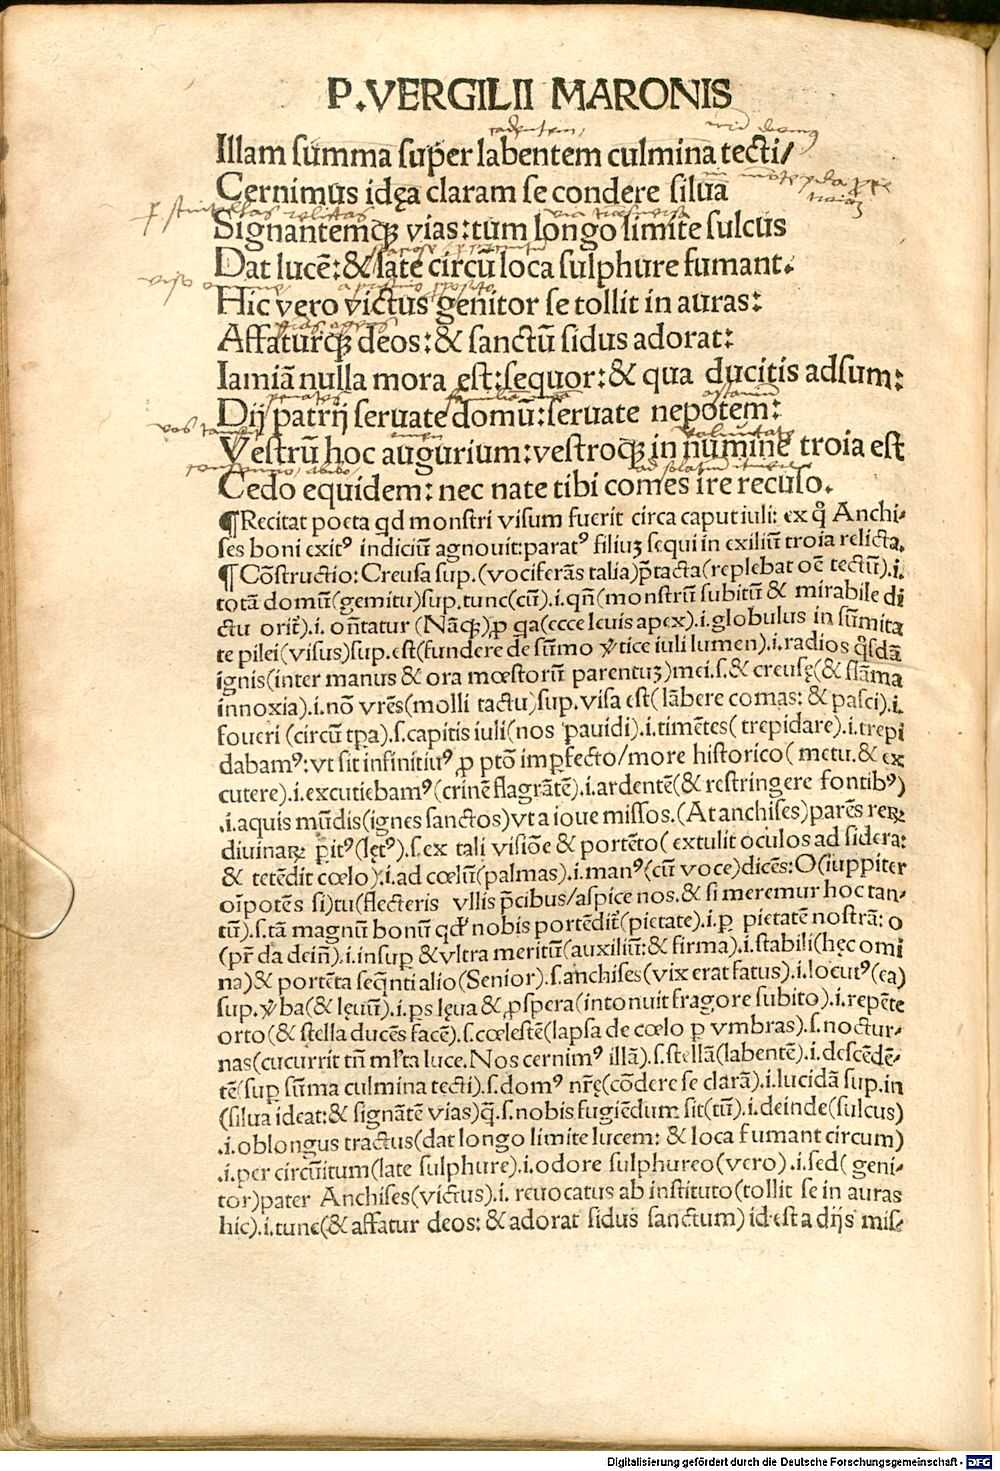 P.VERGILII MARONIS
Illam summa super labentem culmina tecti/
Cernimus idęa claram se condere silua
Signantemq; vias: tum longo limite sulcus
Dat lucē: & late circū loca sulphure fumant.
Hic vero victus genitor se tollit in auras:
Affaturq; deos: & sanctū sidus adorat:
Iamiā nulla mora est: sequor: & qua ducitis adsum:
Dij patrij seruate domū: seruate nepotem:
Vestrū hoc augurium: vestroq; in numine troia est
Cedo equidem: nec nate tibi comes ire recuso.
¶Recitat poeta qd monstri visum fuerit circa caput iuli: ex q̄ Anchi-
ses boni exitꝰ indiciū agnouit: paratꝰ filiuʒ sequi in exiliū troia relicta.
¶Cōstructio: Creusa sup.(vociferās talia)p̄tacta(replebat oē tectū).i.
totā domū(gemitu)sup.tunc(cū).i.qn̄(monstrū subitū & mirabile di
ctu orit̄).i. on̄tatur (Nāq;)ꝓ qa(ecce leuis apex).i.globulus in sūmita
te pilei(visus)sup.est(fundere de sūmo v̄tice iuli lumen).i.radios q̄sdā
ignis(inter manus & ora mœstorū parentuʒ)mei.s.& creusę(& flāma
innoxia).i.nō vrēs(molli tactu)sup.visa est(lābere comas: & pasci).i.
foueri (circū tp̄a).s.capitis iuli(nos pauidi).i.timētes( trepidare).i.trepi
dabamꝰ: vt sit infinitiuꝰ ꝓ ptō imperfecto/more historico( metu.& ex
cutere).i.excutiebamꝰ(crinē flagrātē).i.ardentē(& restringere fontibꝰ)
.i.aquis mūdis(ignes sanctos)vt a ioue missos.(At anchises)parēs reꝝ
diuinaꝝ p̄itꝰ(lętꝰ).s.ex tali visiōe & portēto( extulit oculos ad sidera:
& tetēdit cœlo).i.ad cœlū(palmas).i.manꝰ(cū voce)dicēs: O(iuppiter
oīpotēs si)tu(flecteris vllis p̄cibus/aspice nos.& si meremur hoc tan-
tū).s.tā magnū bonū qd' nobis portēdit̄(pietate).i.ꝑ pietatē nostrā: o
(pr̄ da dein̄).i.insuꝑ & vltra meritū(auxiliū: & firma).i.stabili(hęc omi
na)& portēta seq̄nti alio(Senior).s.anchises(vix erat fatus).i.locutꝰ(ea)
sup.v̄ba(& lęuū).i.ꝑs lęua & ꝓspera(intonuit fragore subito).i.repēte
orto(& stella ducēs facē).s.cœlestē(lapsa de cœlo ꝑ vmbras).s.noctur-
nas(cucurrit tn̄ ml'ta luce. Nos cernimꝰ illā).s.stellā(labentē).i.descēdē-
tē(suꝑ sūma culmina tecti).s.domꝰ nr̄ę(cōdere se clarā).i.lucidā sup.in
(silua ideat: & signātē vias)q̄.s.nobis fugiēdum sit(tū).i.deinde(sulcus)
.i.oblongus tractus(dat longo limite lucem: & loca fumant circum)
.i.per circūitum(late sulphure).i.odore sulphureo(vero).i.sed( geni-
tor)pater Anchises(victus).i. reuocatus ab instituto(tollit se in auras
hic).i.tunc(& affatur deos: & adorat sidus sanctum) id est a dijs mis-
Digitalisierung gefördert durch die Deutsche Forschungsgemeinschaft - DFG